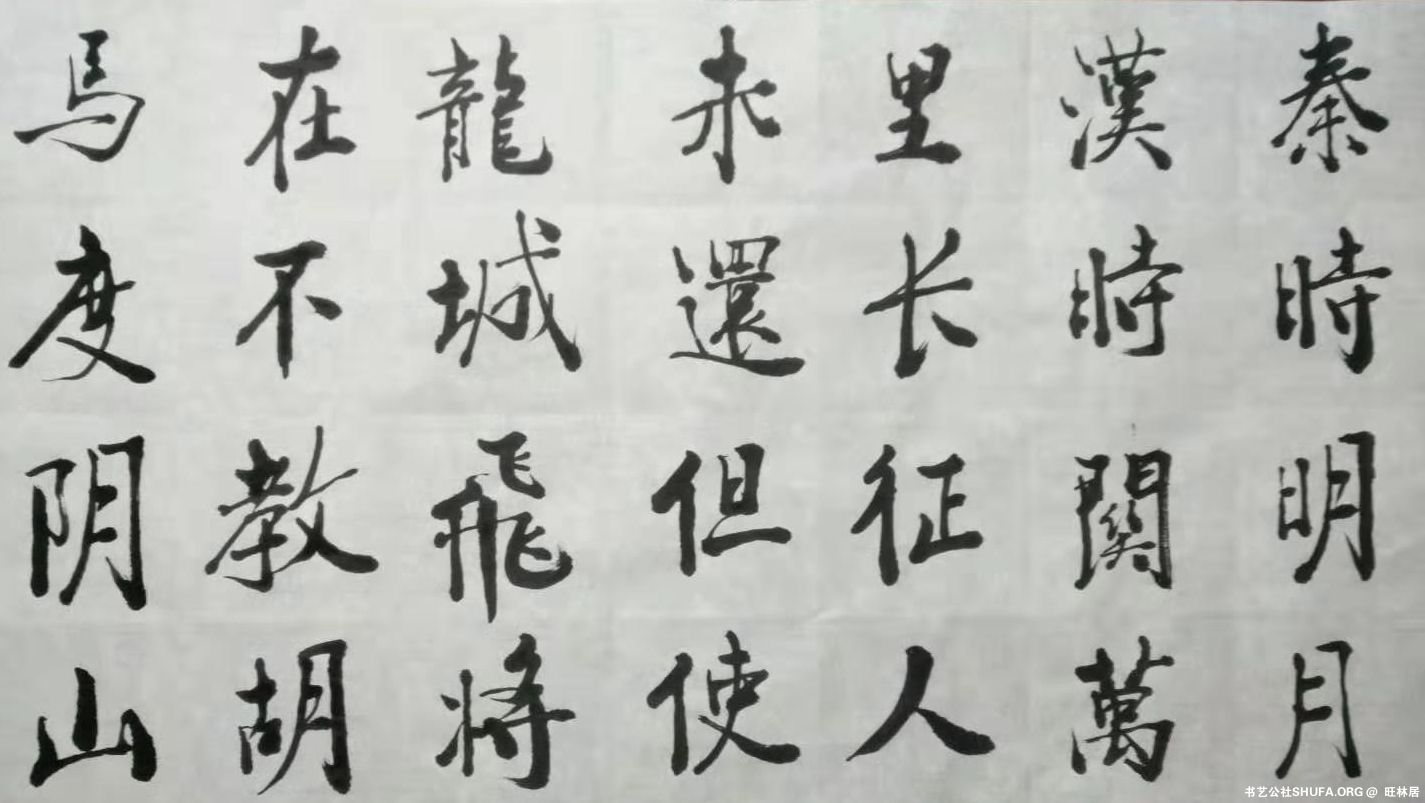 秦時明月
漢時関萬
里长征人
未還但使
龍城飛将
在不教胡
馬度阴山
书艺公社SHUFA.ORG@ 旺林居